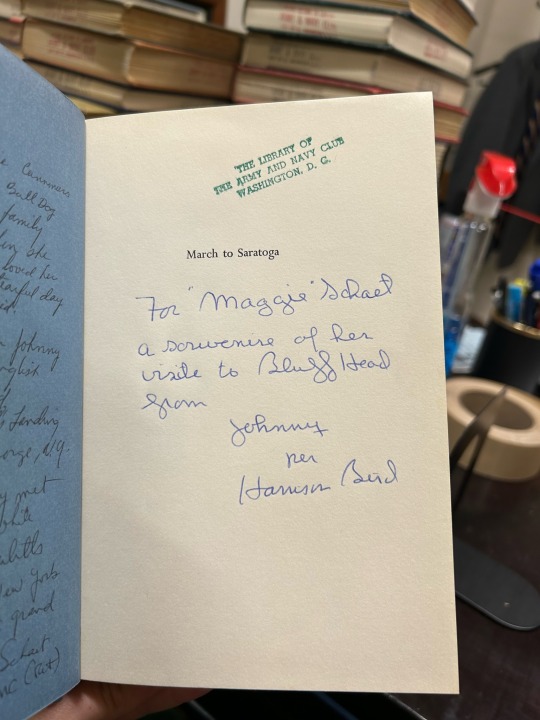 e Cummers
Bull Dog
family
she
loved her
tearful day
Johnny
Landing
orge, N.Y.
met
New York
grand
Schaet
MC (Ret)
THE LIBRARY OF
THE ARMY AND NAVY CLUB
WASHINGTON, D. C.
March to Saratoga
For "Maggie" Schaet
a souvenire of her
visite to Bluff Head
from
Johnny
per
Harrison Bird